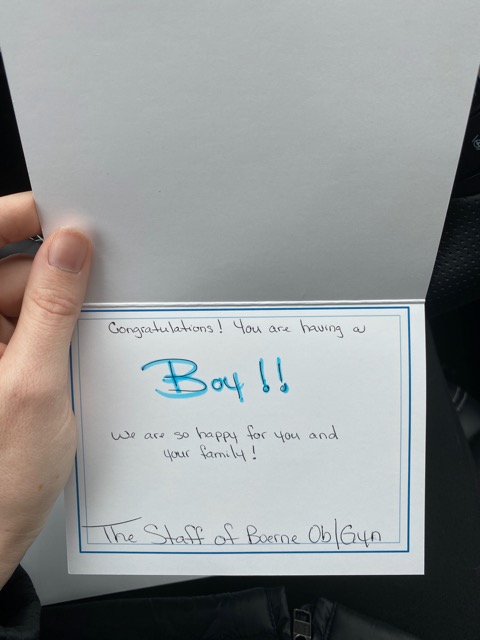 Congratulations! You are having a
Boy!!
We are so happy for you and
your family!
The Staff of Boerne Ob/Gyn